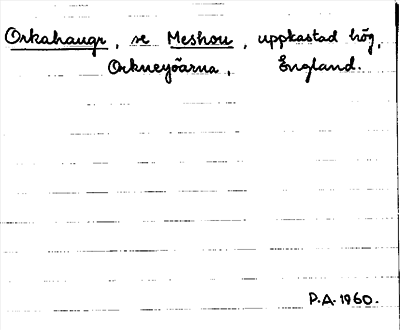 Orkahaugr, se Meshou, uppkastad hög,
Orkneyöarna, England.
P.A. 1960.